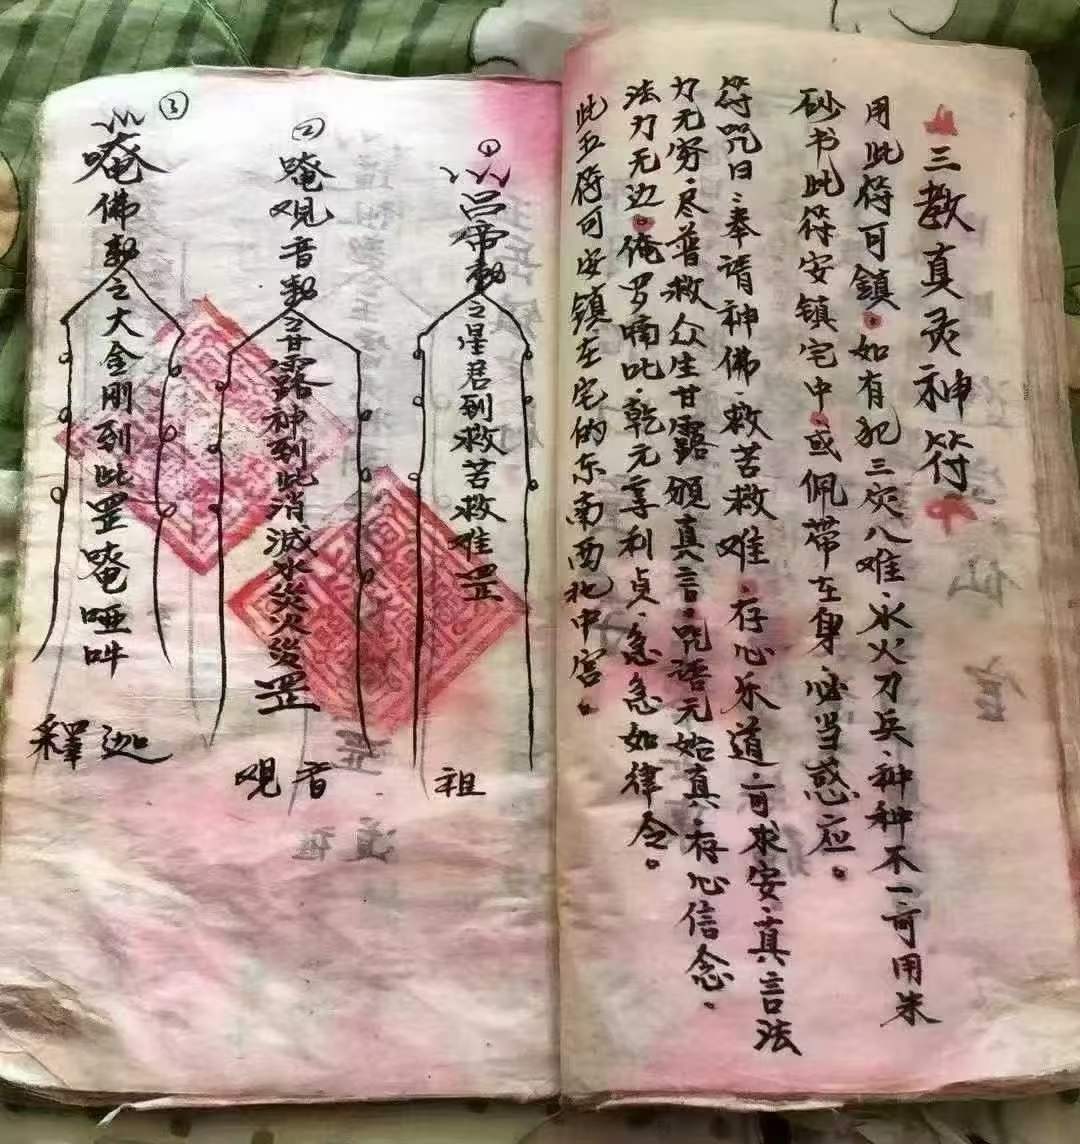 三教真灵神符
用此符可鎮。如有犯三灾八难、水火刀兵、种种不一可用朱
砂书此符安镇宅中、或佩带在身、必当感应。
符咒曰：奉请神佛、救苦救难、存心乐道、可求安、真言法
力无穷、尽普救众生甘露、颁真言、咒语元始真、存心信念。
法力无边。俺罗喃叱、乾元亨利贞、急急如律令。
此五符可安镇在宅的东南西北中宫。
①
吕帝勅之星君到救苦救难罡
祖
②
唵观音勅之甘露神到此消滅水災火災罡
观音
③
唵佛勅之大金刚到此罡唵哑吽
釋迦